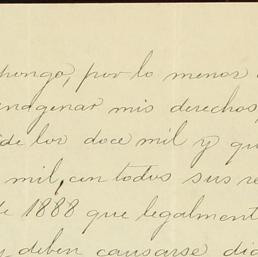 pongo, por lo menos
enagenar mis derechos,
de los doce mil y qu
mil, con todos sus re
de 1888 que legalment
y deben causarse di